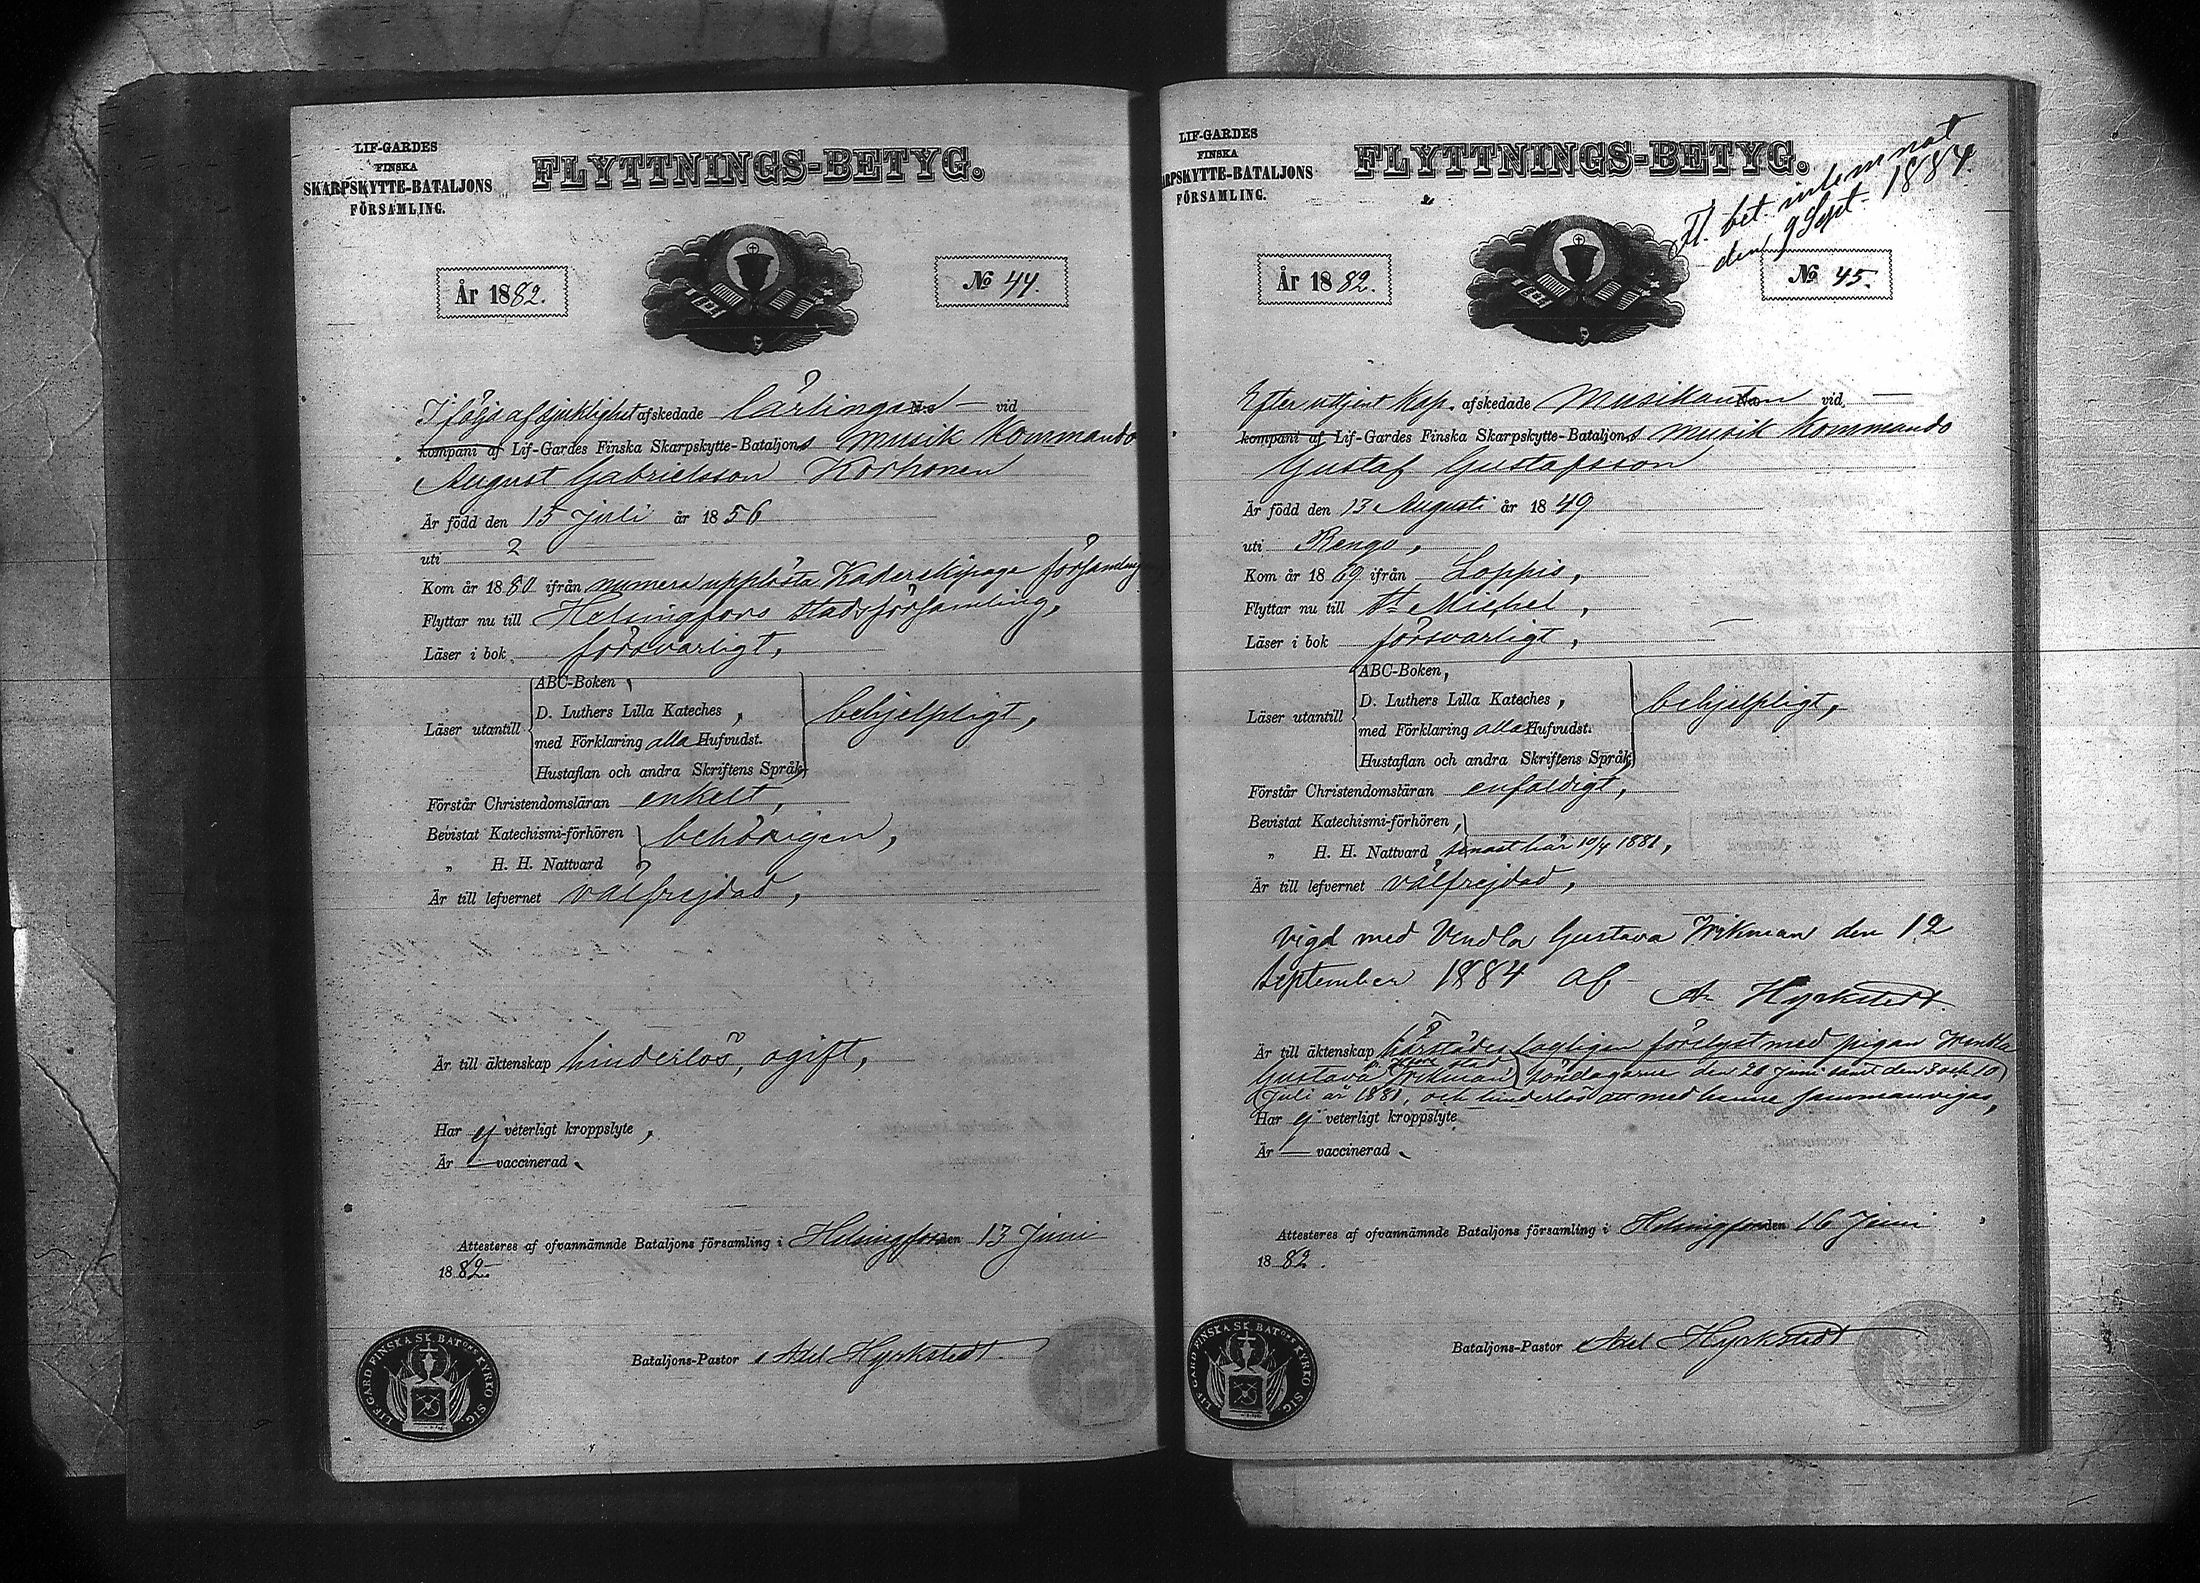 LIF-GARDES
FINSKA
SKARPSKYTTE-BATALJONS
FÖRSAMLING.
FLYTTNINGS-BETYG.
År 1882.
№ 44.
I följd af sjuklighet afskedade lärlingen vid
kompani af Lif-Gardes Finska Skarpskytte-Bataljons Musik Kommando
August Gabrielsson Korhonen
Är född den 15 Juli år 1856
uti ?
Kom år 1880 ifrån numera upplösta Kadersekipage församling
Flyttar nu till Helsingfors stadsförsamling,
Läser i bok försvarligt,
ABC-Boken,
D. Luthers Lilla Kateches,
Läser utantill
behjelpligt,
med Förklaring alla Hufvudst.
Hustaflan och andra Skriftens Språk,
Förstår Christendomsläran enkelt,
Bevistat Katechismi-förhören
behörigen,
„ H. H. Nattvard
Är till lefvernet välfrejdad,
Är till äktenskap hinderlös, ogift,
Har ej veterligt kroppslyte,
Är — vaccinerad.
Attesteres af ofvannämnde Bataljons församling i Helsingfors den 13 Juni
1882.
Bataljons-Pastor Axel Hyrkstedt
LIF-GARD FINSKA SK. BAT:ONS KYRKO SIG.
LIF-GARDES
FINSKA
ARPSKYTTE-BATALJONS
FÖRSAMLING.
FLYTTNINGS-BETYG.
Fl. bet. inlemnat
den 9 Sept. 1884.
År 1882.
№ 45.
Efter uttjent kap. afskedade Musikanten vid —
kompani af Lif-Gardes Finska Skarpskytte-Bataljons Musik Kommando
Gustaf Gustafsson
Är född den 13 Augusti år 1849
uti Rengo,
Kom år 1869 ifrån Loppis,
Flyttar nu till St. Michel,
Läser i bok försvarligt,
ABC-Boken,
D. Luthers Lilla Kateches,
Läser utantill
behjelpligt,
med Förklaring alla Hufvudst.
Hustaflan och andra Skriftens Språk,
Förstår Christendomsläran enfaldigt,
Bevistat Katechismi-förhören,
„ H. H. Nattvard senast här 10/4 1881,
Är till lefvernet välfrejdad,
Vigd med Vendla Gustava Wikman den 12
September 1884 af
A. Hyrkstedt.
Är till äktenskap härstädes lagligen förelyst med pigan Wendla
Gustava Wikman söndagarne den 26 Juni samt den 3 och 10
Juli år 1881, och hinderlös att med henne sammanvigas,
Har ej veterligt kroppslyte
Är — vaccinerad.
Attesteres af ofvannämnde Bataljons församling i Helsingfors den 16 Juni
1882.
Bataljons-Pastor Axel Hyrkstedt
LIF-GARD FINSKA SK. BAT:ONS KYRKO SIG.